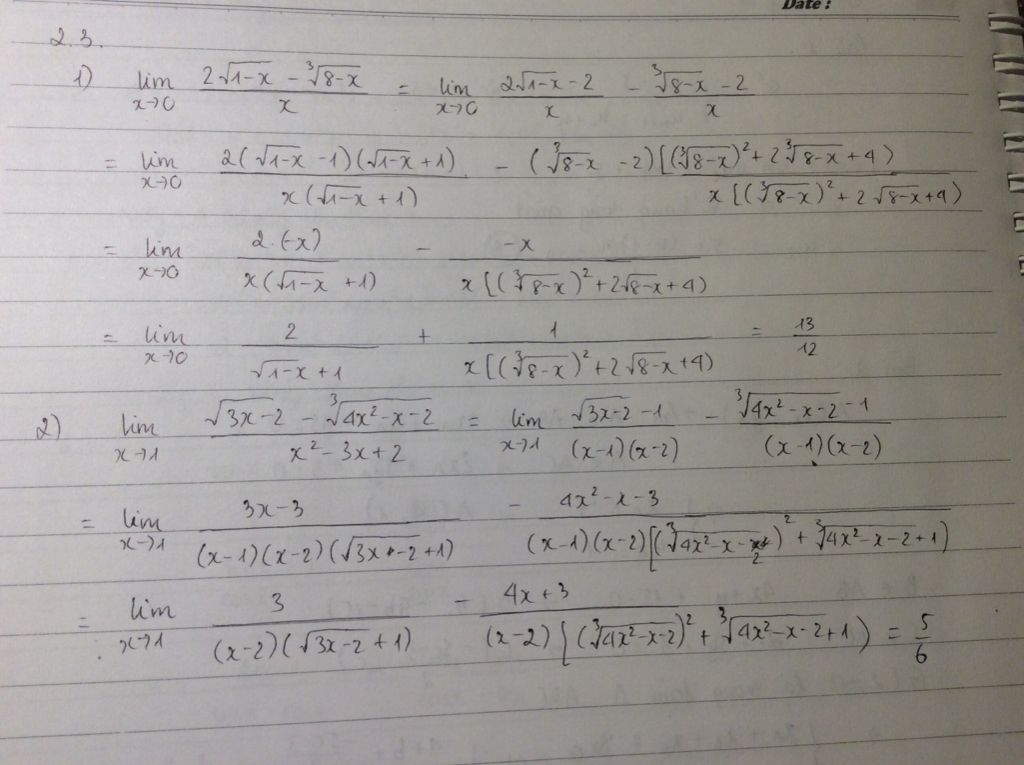 Date :
2.3.
1) lim x→0 (2√(1-x) - ∛(8-x))/x = lim x→0 (2√(1-x) - 2)/x - (∛(8-x) - 2)/x
= lim x→0 2(√(1-x) - 1)(√(1-x) + 1)/(x(√(1-x) + 1)) - (∛(8-x) - 2)[(∛(8-x))² + 2∛(8-x) + 4)/(x[(∛(8-x))² + 2√(8-x) + 4)
= lim x→0 2.(-x)/(x(√(1-x) + 1)) - -x/(x[(∛(8-x))² + 2√(8-x) + 4)
= lim x→0 2/(√(1-x) + 1) + 1/(x[(∛(8-x))² + 2√(8-x) + 4) = 13/12
2) lim x→1 (√(3x-2) - ∛(4x²-x-2))/(x² - 3x + 2) = lim x→1 (√(3x-2) - 1)/((x-1)(x-2)) - (∛(4x²-x-2) - 1)/((x-1)(x-2))
= lim x→1 (3x-3)/((x-1)(x-2)(√(3x-2) + 1)) - (4x²-x-3)/((x-1)(x-2)[(∛(4x²-x-2))² + ∛(4x²-x-2) + 1)
= lim x→1 3/((x-2)(√(3x-2) + 1)) - (4x+3)/((x-2)[(∛(4x²-x-2))² + ∛(4x²-x-2) + 1) = 5/6